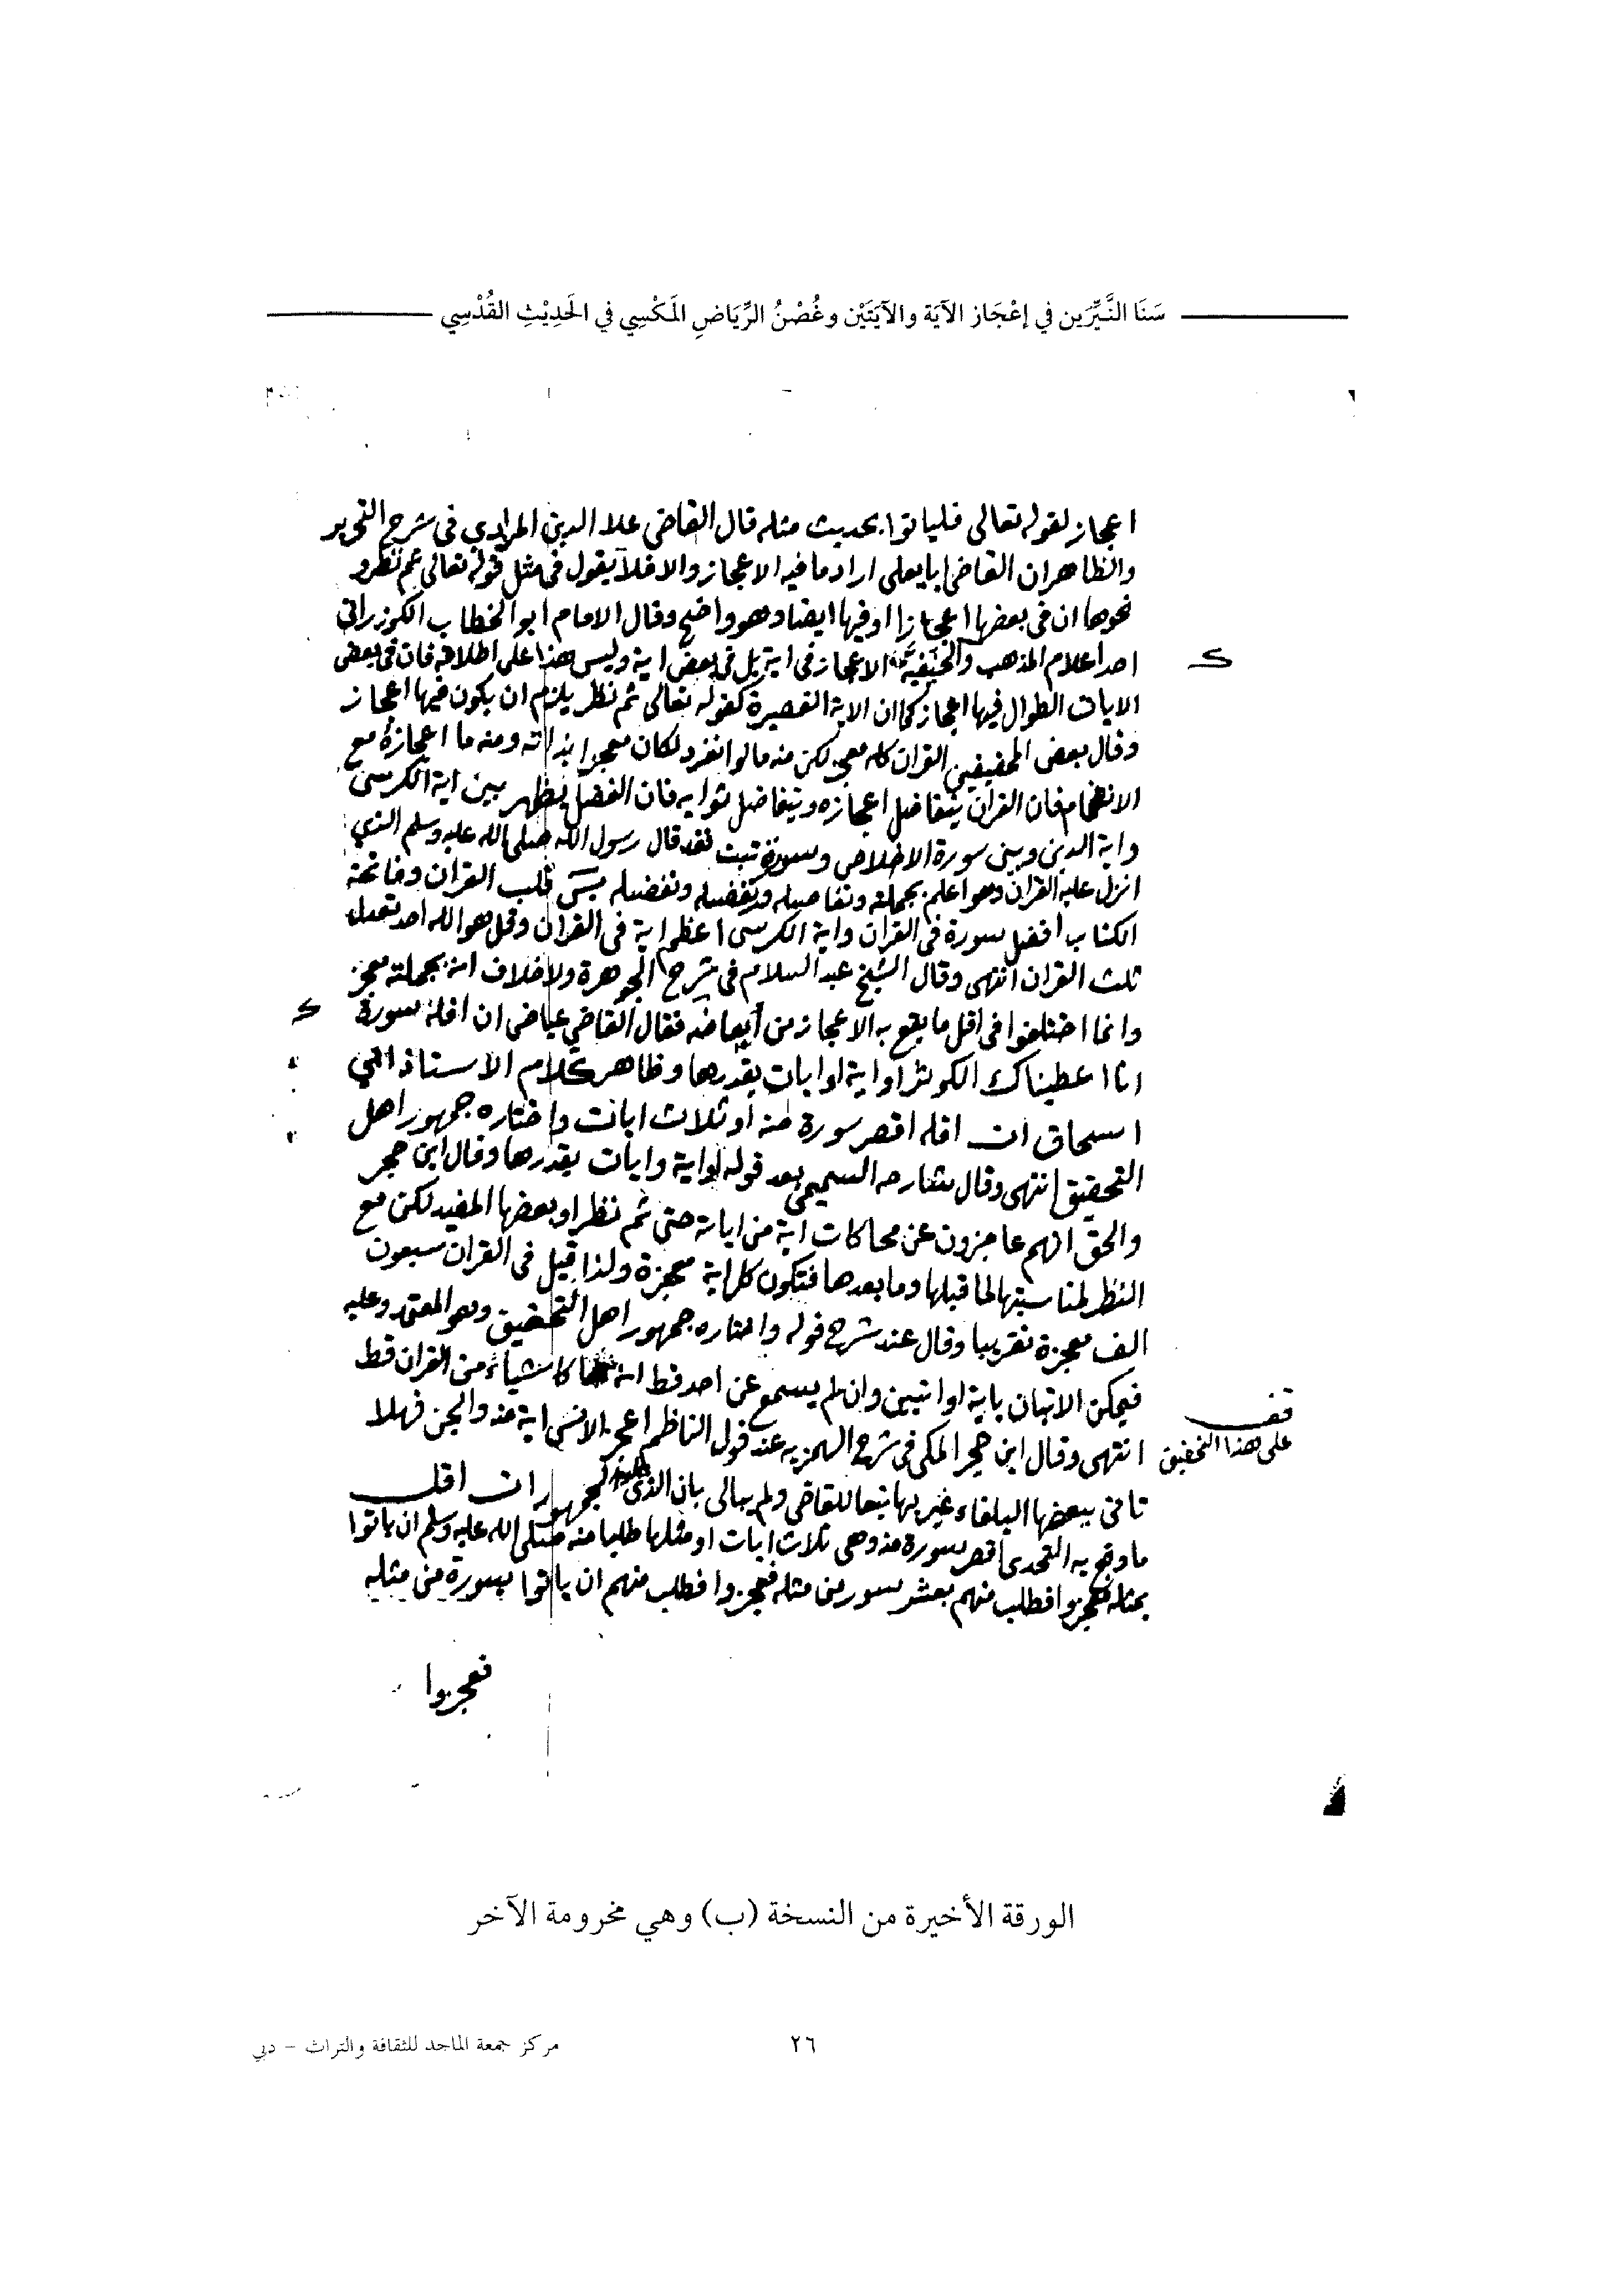 سَنَا النَّيِّرَين في إعْجَاز الآيَة والآيَتَيْن وغُصْنُ الرِّيَاضِ المَكْسِي في الحَدِيْثِ القُدْسِي
اعجاز لقوله تعالى فلياتوا بحديث مثله قال القاضي علا الدين المرادي في شرح التحرير
والظاهران القاضي ابا يعلى اراد ما فيه الاعجاز والا فلا يقول في مثل قوله تعالى ثم نظر و
نحوها ان في بعضها اعجازا او فيها ايضا وهو واضح وقال الامام ابو الخطاب الكوزراني
احد اعلام المذهب والحنفية الاعجاز في اية بل في بعض اية وليس هذا على اطلاقه فان في بعض
الايات الطوال فيها اعجاز كما ان الاية القصيرة كقوله تعالى ثم نظر يلزم ان يكون فيها اعجاز
وقال بعض المحققين القران كله معجز لكن منه ما لو انفرد لكان معجزا بذاته ومنه ما اعجازه مع
الانضمام فان القران يتفاضل اعجازه ويتفاضل ثوابه فان الفضل يظهر بين اية الكرسي
واية الدين وبين سورة الاخلاص وسورة تبت فقد قال رسول الله صلى الله عليه وسلم الذي
انزل عليه القران وهو اعلم بجملته وتفاصيله وتفضيله يسَ قلب القران وفاتحة
الكتاب افضل سورة في القران واية الكرسي اعظم اية في القران وقل هو الله احد تعدل
ثلث القران انتهى وقال الشيخ عبد السلام في شرح الجوهرة ولا خلاف انه بجملته معجز
وانما اختلفوا في اقل ما يقع به الاعجاز من ابعاضه فقال القاضي عياض ان اقله سورة
انا اعطيناك الكوثر او اية او ايات بقدرها وظاهر كلام الاستاذ ابي
اسحاق ان اقله اقصر سورة منه او ثلاث ايات واختاره جمهور اهل
التحقيق انتهى وقال شارحه السحيمي بعد قوله او اية وايات بقدرها وقال ابن حجر
والحق انهم عاجزون عن محاكات اية من اياته حتى ثم نظر او بعضها المفيد لكن مع
النظر لمناسبتها لما قبلها وما بعدها فتكون كل اية معجزة ولذا قيل في القران سبعون
الف معجزة تقريبا وقال عند شرح قوله واختاره جمهور اهل التحقيق وهو المعتمد وعليه
فيمكن الاتيان باية او ايتين وان لم يسمع عن احد قط انه حاكا شياء من القران قط
قف
على هذا التحقيق
انتهى وقال ابن حجر المكي في شرح الهمزيه عند قول الناظم اعجز الانس اية منه والجن فهلا
تاتي ببعضها البلغاء غير بها تبعا للقاضي ولم يبالى بان الذي عليه الجمهور ان اقل
ما وقع به التحدى اقصر سورة منه وهي ثلاث ايات او مثلها طلبا منه صلى الله عليه وسلم ان ياتوا
بمثله فعجزوا فطلب منهم بعشر سور من مثله فعجزوا فطلب منهم ان ياتوا بسورة من مثله
فعجزوا
الورقة الأخيرة من النسخة (ب) وهي مخرومة الآخر
٢٦
مركز جمعة الماجد للثقافة والتراث - دبي